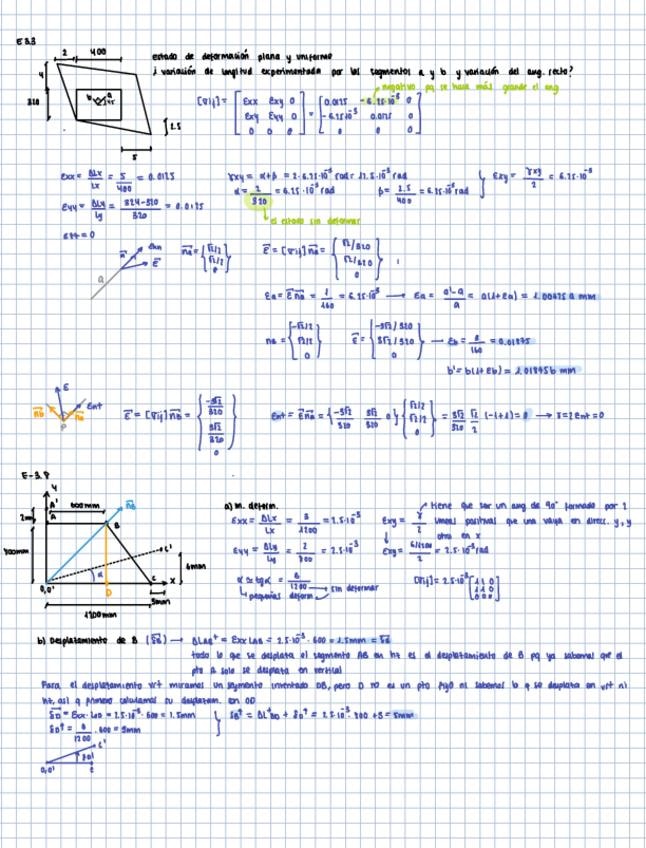 E 3.3
2 400
4
320
b a
2.5
5
estado de deformación plana y uniforme
¿ variación de longitud experimentada por los segmentos a y b y variación del ang. recto?
negativo pq se hace más grande el ang
[σij] = [εxx εxy 0 / εxy εyy 0 / 0 0 0] = [0.0125 -6.25·10⁻³ 0 / -6.25·10⁻³ 0.0125 0 / 0 0 0]
εxx = ΔLx/Lx = 5/400 = 0.0125
εyy = ΔLy/Ly = 324-320/320 = 0.0125
εzz = 0
γxy = α+β = 2·6.25·10⁻³ rad = 12.5·10⁻³ rad
α = 2/320 = 6.25·10⁻³ rad β = 2.5/400 = 6.25·10⁻³ rad } εxy = γxy/2 = 6.25·10⁻³
el estado sin deformar
n εnn ε a
na = {√2/2 / √2/2 / 0} ε = [σij] na = {√2/320 / √2/320 / 0}
εa = ε na = 1/160 = 6.25·10⁻³ → εa = a'-a/a = a(1+εa) = 1.00625 a mm
nb = {-√2/2 / √2/2 / 0} ε = {-3√2/320 / 3√2/320 / 0} → εb = 3/160 = 0.01875
b' = b(1+εb) = 1.01875b mm
ε nb na εnt P
ε = [σij] nb = {-3√2/320 / 3√2/320 / 0} εnt = ε na = {-3√2/320 3√2/320 0} {√2/2 / √2/2 / 0} = 3√2/320 √2/2 (-1+1) = 0 → γ = 2 εnt = 0
E-3.8
y
A' nB
600mm
2mm A B
800mm
C'
6mm
α
0,0' D C x
3mm
1200mm
a) m. deform.
εxx = ΔLx/Lx = 3/1200 = 2.5·10⁻³
εyy = ΔLy/Ly = 2/800 = 2.5·10⁻³
α ≈ tgα = 6/1200 → sin deformar
pequeñas deform
εxy = γ/2
tiene que ser un ang de 90° formado por 2
lineas positivas que una vaya en direcc. y, y
otra en x
εxy = 6/1200/2 = 2.5·10⁻³ rad
[σij] = 2.5·10⁻³ [1 1 0 / 1 1 0 / 0 0 0]
b) Desplazamiento de B (δB) → ΔLAB = εxx LAB = 2.5·10⁻³ · 600 = 1.5mm = δB
todo lo que se desplaza el segmento AB en hz es el desplazamiento de B pq ya sabemos que el
pto A solo se desplaza en vertical
Para el desplazamiento vrt miramos un segmento inventado DB, pero D no es un pto fijo ni sabemos lo q se desplaza en vrt ni
hz, así q primero calculamos su desplazam. con OD
δD = εxx · LOD = 2.5·10⁻³ · 600 = 1.5mm
δD↑ = 6/1200 · 600 = 3mm } δB↑ = ΔLBD + δD↑ = 2.5·10⁻³ · 800 + 3 = 5mm
C'
δD↑
0,0' C